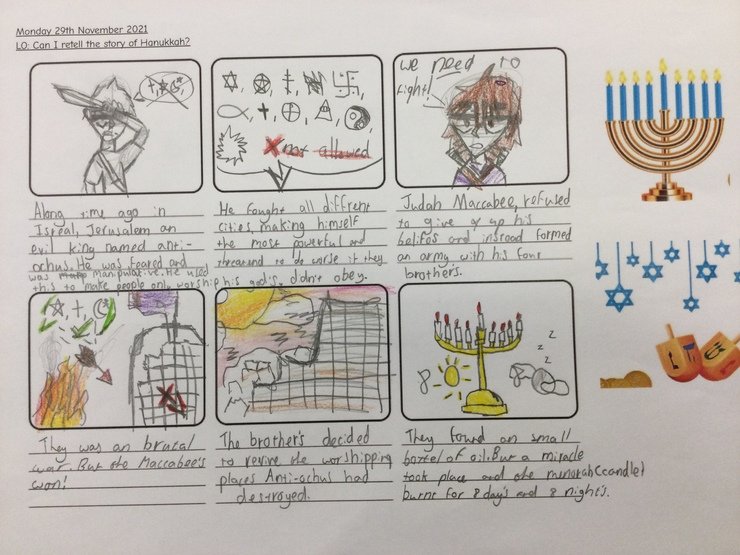 Monday 29th November 2021
LO: Can I retell the story of Hanukkah?
we need to
fight!
not allowed
Along time ago in
Isreal, Jerusalem an
evil king named anti-
ochus. He was feared and
was manipulative. He used
this to make people only worship his god's.
He fought all diffrent
cities, making himself
the most powerful and
threatend to do worse if they
didn't obey.
Judah Maccabee, refused
to give up his
belifes and insread formed
an army with his four
brothers.
They was an brutal
war. But the Maccabee's
won!
The brother's decided
to revive the worshipping
places Anti-ochus had
destroyed.
They found an small
bottel of oil. But a miracle
took place and the menorah (candle)
burnt for 8 day's and 8 night's.
8
8
z
z
z